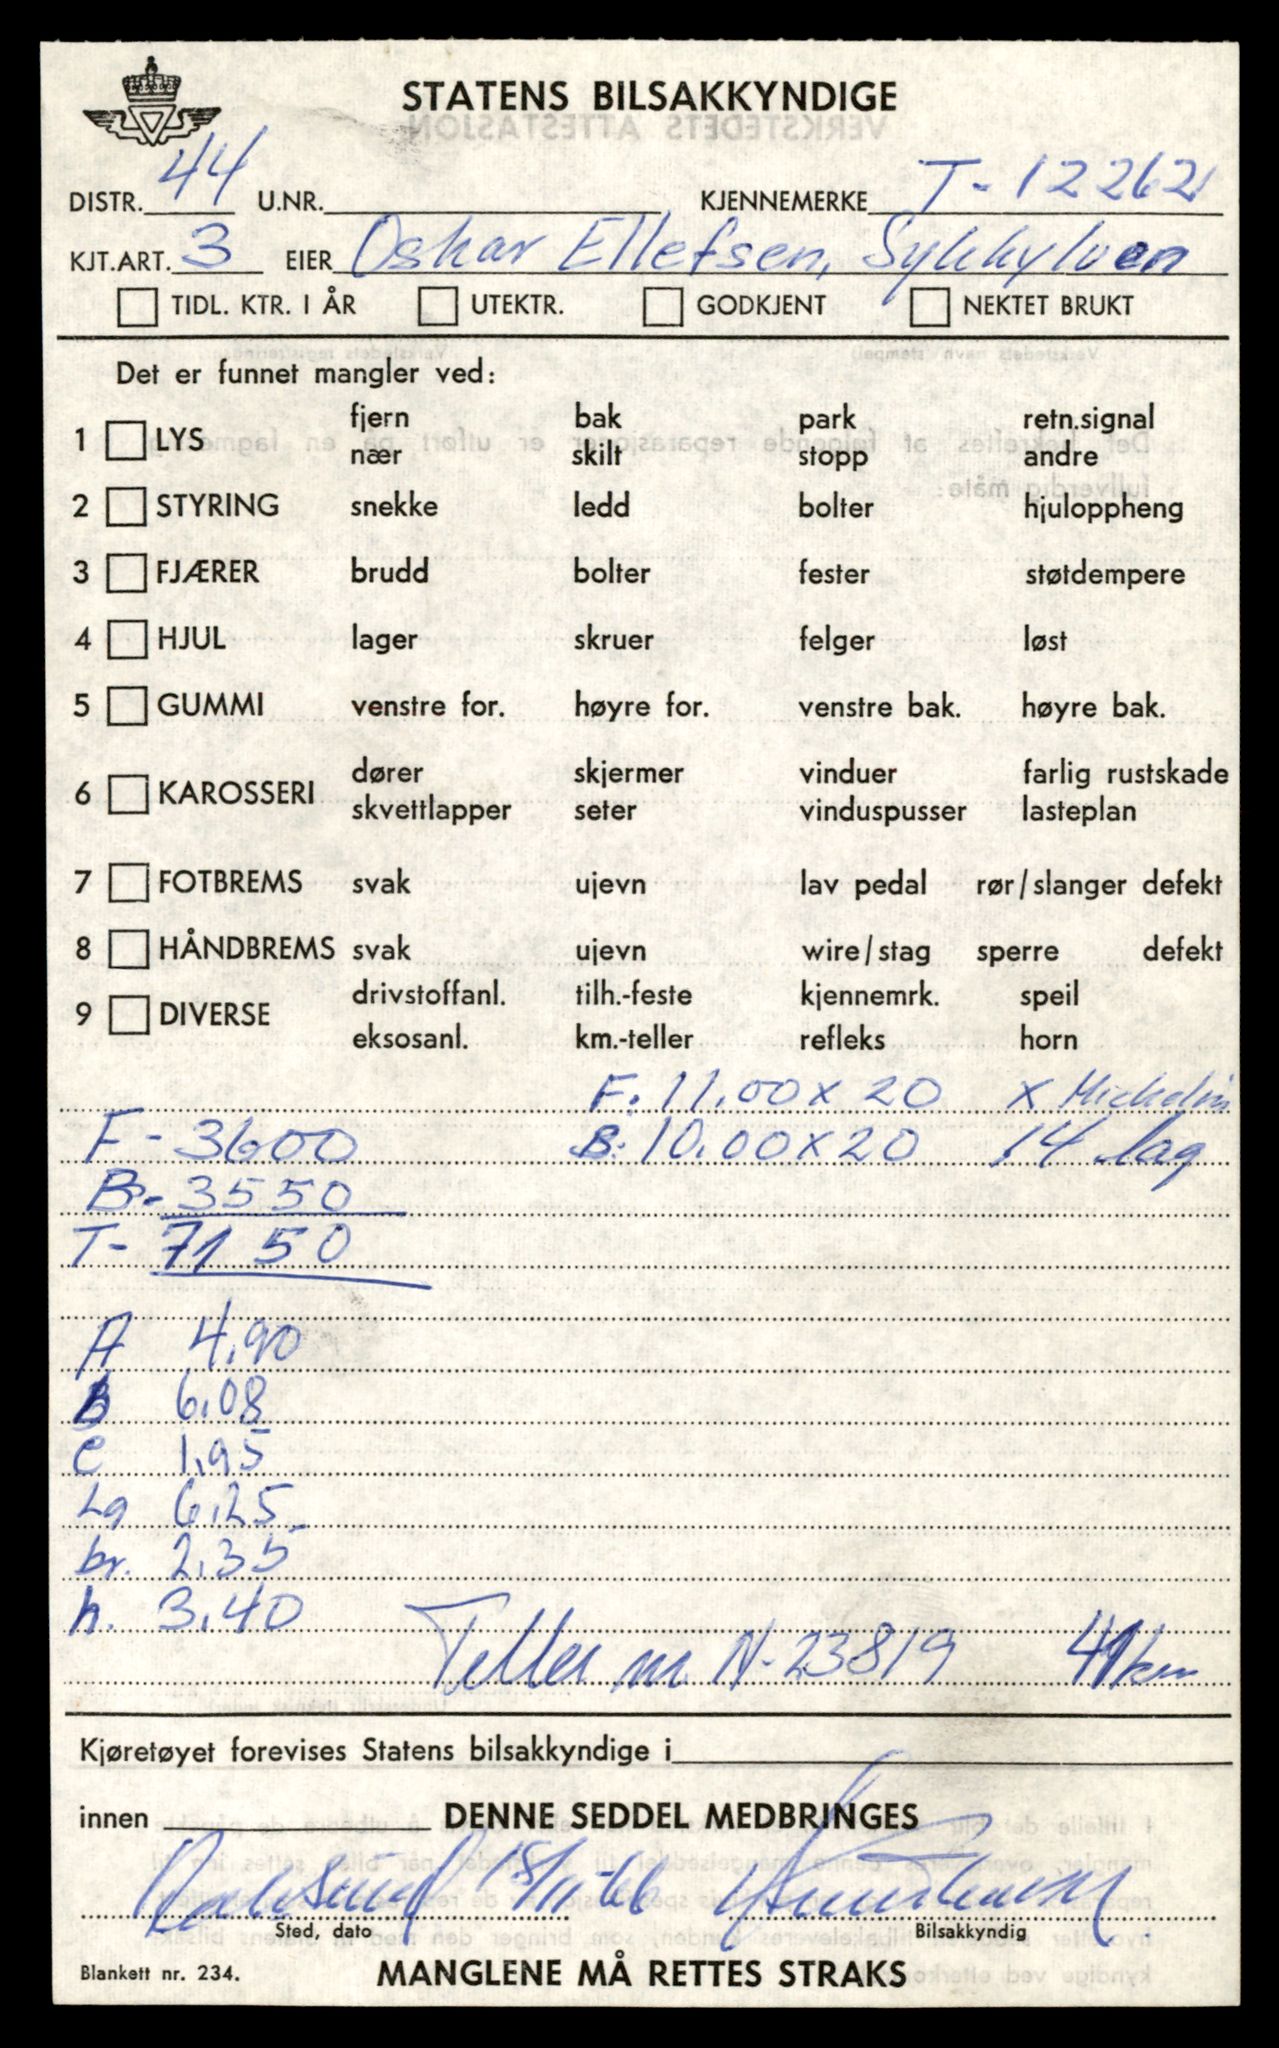 STATENS BILSAKKYNDIGE
DISTR. 44 U.NR. KJENNEMERKE T-12262
KJT.ART. 3 EIER Oskar Ellefsen, Sykkylven
TIDL. KTR. I ÅR UTEKTR. GODKJENT NEKTET BRUKT
Det er funnet mangler ved:
fjern bak park retn.signal
1 LYS
nær skilt stopp andre
2 STYRING snekke ledd bolter hjuloppheng
3 FJÆRER brudd bolter fester støtdempere
4 HJUL lager skruer felger løst
5 GUMMI venstre for. høyre for. venstre bak. høyre bak.
dører skjermer vinduer farlig rustskade
6 KAROSSERI
skvettlapper seter vinduspusser lasteplan
7 FOTBREMS svak ujevn lav pedal rør/slanger defekt
8 HÅNDBREMS svak ujevn wire/stag sperre defekt
drivstoffanl. tilh.-feste kjennemrk. speil
9 DIVERSE
eksosanl. km.-teller refleks horn
F. 11.00 x 20 x Michelin
F - 3600 B: 10.00 x 20 14 lag
B - 3550
T - 7150
A 4,90
B 6,08
C 1,95
Lg 6,25
br. 2,35
h. 3,40
Teller m N-23819 41 km
Kjøretøyet forevises Statens bilsakkyndige i
innen DENNE SEDDEL MEDBRINGES
Sted, dato Bilsakkyndig
Blankett nr. 234. MANGLENE MÅ RETTES STRAKS